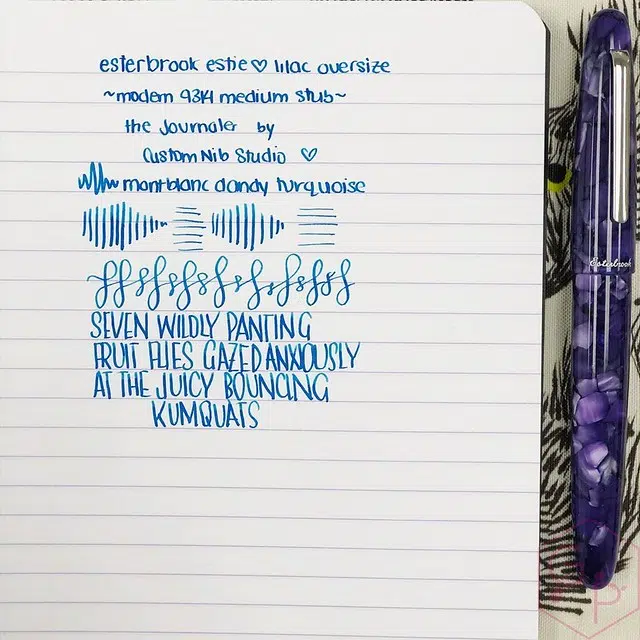 esterbrook estie♡ lilac oversize
~modern 9314 medium stub~
the Journaler by
Custom Nib Studio ♡
montblanc dandy turquoise
SEVEN WILDLY PANTING
FRUIT FLIES GAZED ANXIOUSLY
AT THE JUICY BOUNCING
KUMQUATS
Esterbrook
P